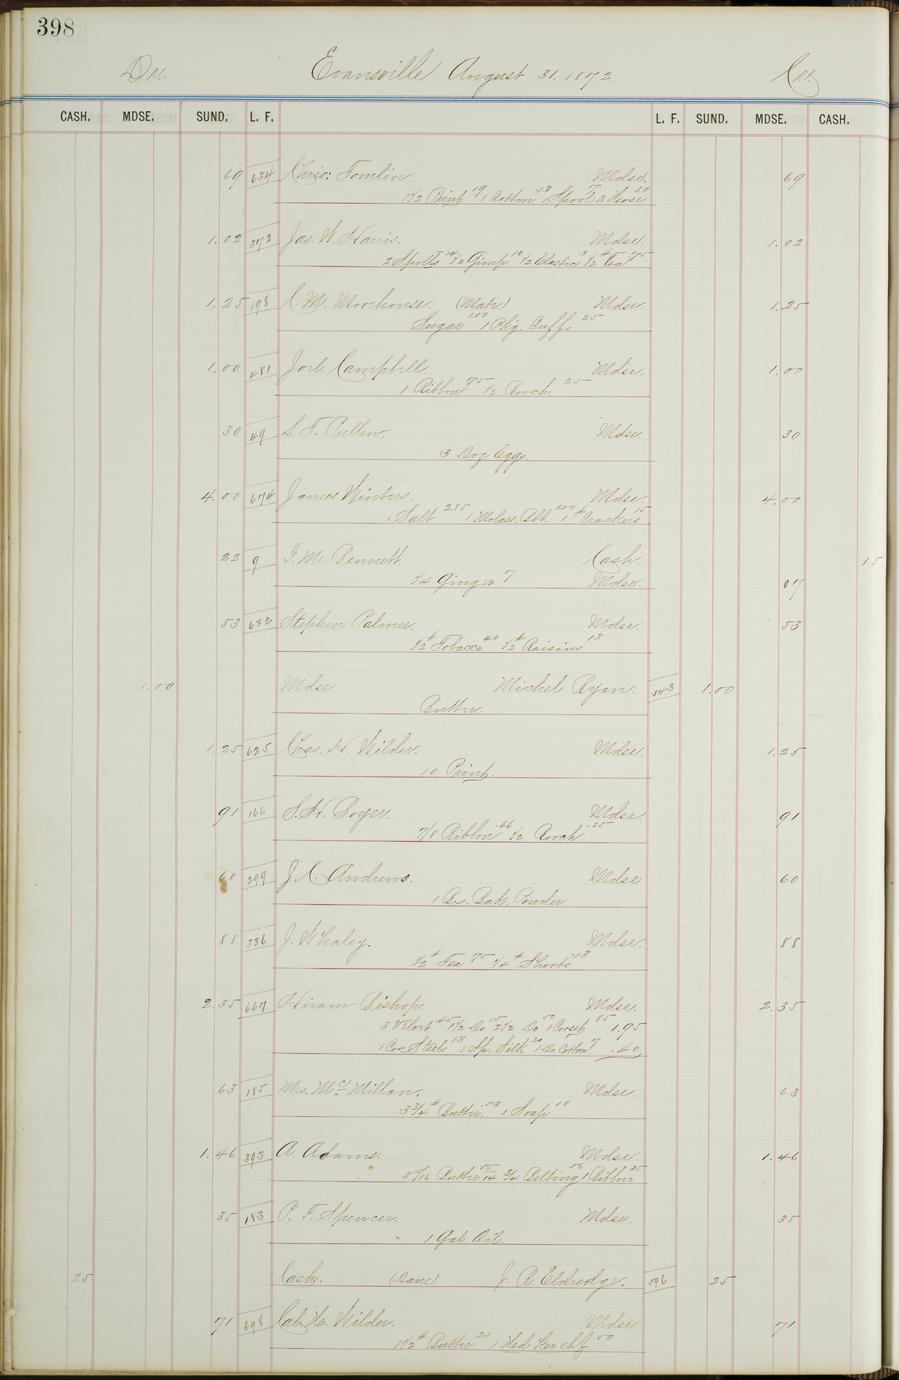 398
Dr. Evansville August 31. 1872. Cr.
CASH. MDSE. SUND. L. F. L. F. SUND. MDSE. CASH.
69 634 Chris: Tomlin Mdse. 69
1 1/2 Print 19 1 Cotton 13 1 Spool 7 2 Hose 30
1.02 372 Jas. W. Harris. Mdse. 1.02
2 Spolls 14 1/2 Gimp 10 1/2 Elastic 3 1/2 # Tea 75
1.25 198 C. M. Morehouse. Mdse 1.25
Sugar 1.00 1 Pkg. Cuffs 25
1.00 481 Campbell. Mdse. 1.00
1 Ribbon 75 1/2 25
30 49 L. T. Pullen. Mdse. 30
3 Doz Eggs.
4.00 674 James Winters. Mdse. 4.00
1 Salt 2.85 1 Molass. Bbl. 1.00 1 # Crackers 15
22 9 Bennett. Cash. 15
1/4 Ginger 7 Mdse. 07
53 632 Stephen Palmer. Mdse. 53
1/2 # Tobacco 40 1/2 # Raisins 13
1.00 Mdse Michel Ryan. 543 1.00
Butter.
1.25 625 Chas. H. Wilder. Mdse. 1.25
10 Print
91 166 S. H. Boyer. Mdse 91
7/8 Ribbon .66 1/2 .25
60 299 J. C. Andrews. Mdse 60
1 Bx. Bak. Powder
88 336 J. Whaley. Mdse. 88
1/2 # Tea 75 1/4 # Shorts 13
2.35 667 Hiram Bishop. Mdse. 2.35
3 Velvet 45 1 1/2 Do 15 2 1/2 Do 50 1 Corset 85 1.95
1 Cor. Steels 13 1 Sp. Silk 20 1 Do Cotton 7 .40
63 185 Mrs. McMillan. Mdse. 63
3 3/4 # Butter .53 1 Soap 10
1.46 303 A. Adams. Mdse. 1.46
Butter 14 3/4 Belting 56 1 Ribbon 35
35 183 P. F. Spencer. Mdse. 35
1 Gal. Oil.
25 Cash. (Dan) J. R. Eldredge. 596 25
71 698 Wilder. Mdse. 71
1 1/2 # Butter 21 1 Hed Ker chf 50